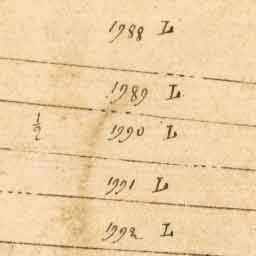 1988 L
1989 L
½ 1990 L
1991 L
1992 L